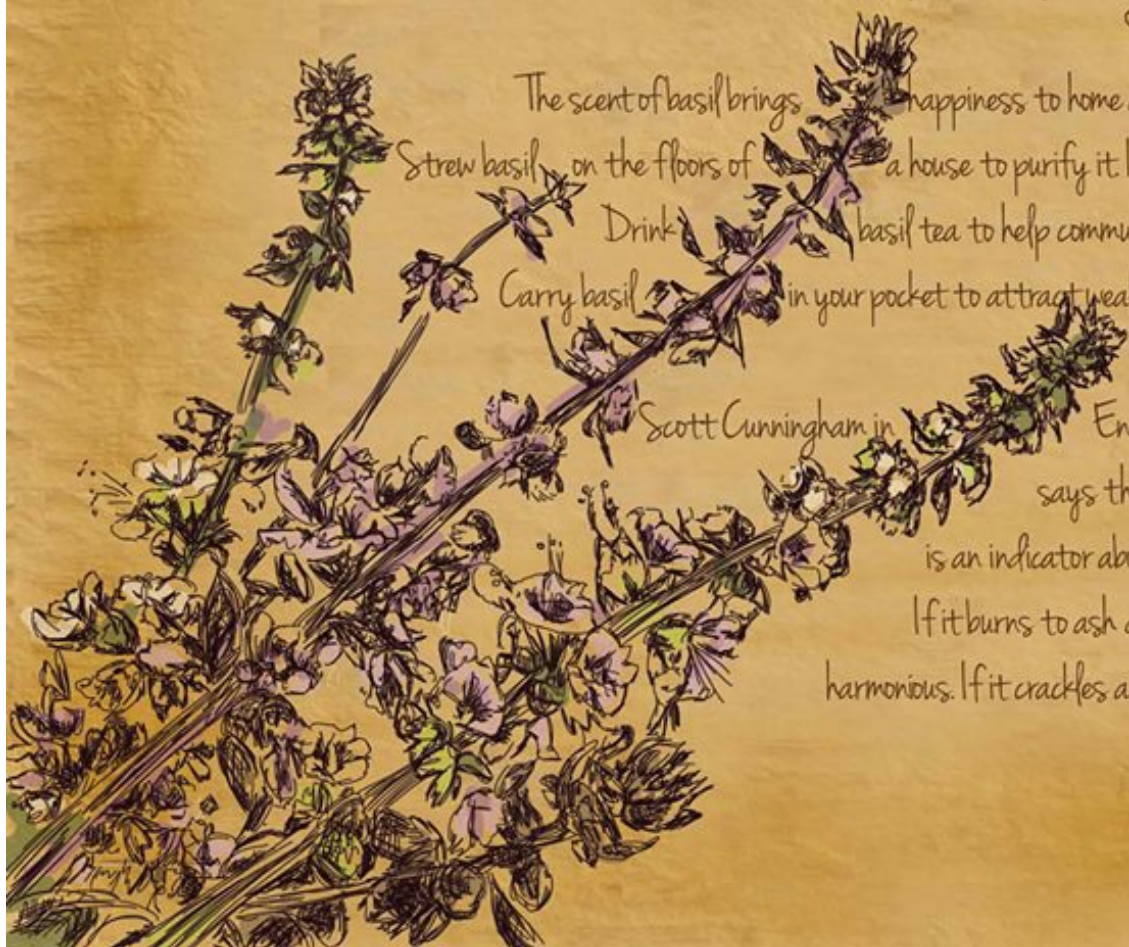 The scent of basil brings happiness to home
Strew basil on the floors of a house to purify it
Drink basil tea to help commu
Carry basil in your pocket to attract wea
Scott Cunningham in En
says th
is an indicator abo
If it burns to ash
harmonious. If it crackles a